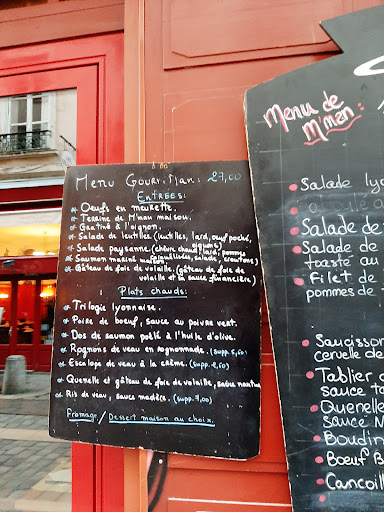 Menu Gour'Man: 27,00
ENTREES:
Oeufs en meurette.
Terrine de M'nau maison.
Gratiné à l'oignon.
Salade de lentilles (lentilles, lard, oeuf poché,
Salade paysanne. (chèvre chaud, lard, pommes,
Saumon mariné salade, croutons)
Gâteau de foie de volaille. (Gâteau de foie de
volaille et sa sauce financière)
Plats chauds:
Trilogie lyonnaise.
Poire de boeuf, sauce au poivre vert.
Dos de saumon poêlé à l'huile d'olive.
Rognons de veau en rognonnade. (supp 5,50)
Escalope de veau à la crème. (supp 2,50)
Quenelle et gâteau de foie de volaille, sauce nantua
Ris de veau, sauce madère. (supp. 7,00)
Fromage / Dessert maison au choix.
Menu de
M'man:
Salade lyo
Salade de
Salade de
toast au
Filet de
pommes de
Saucisson
cervelle de
Tablier
sauce ta
Quenelle
sauce N
Boudin
Boeuf B
Cancoill